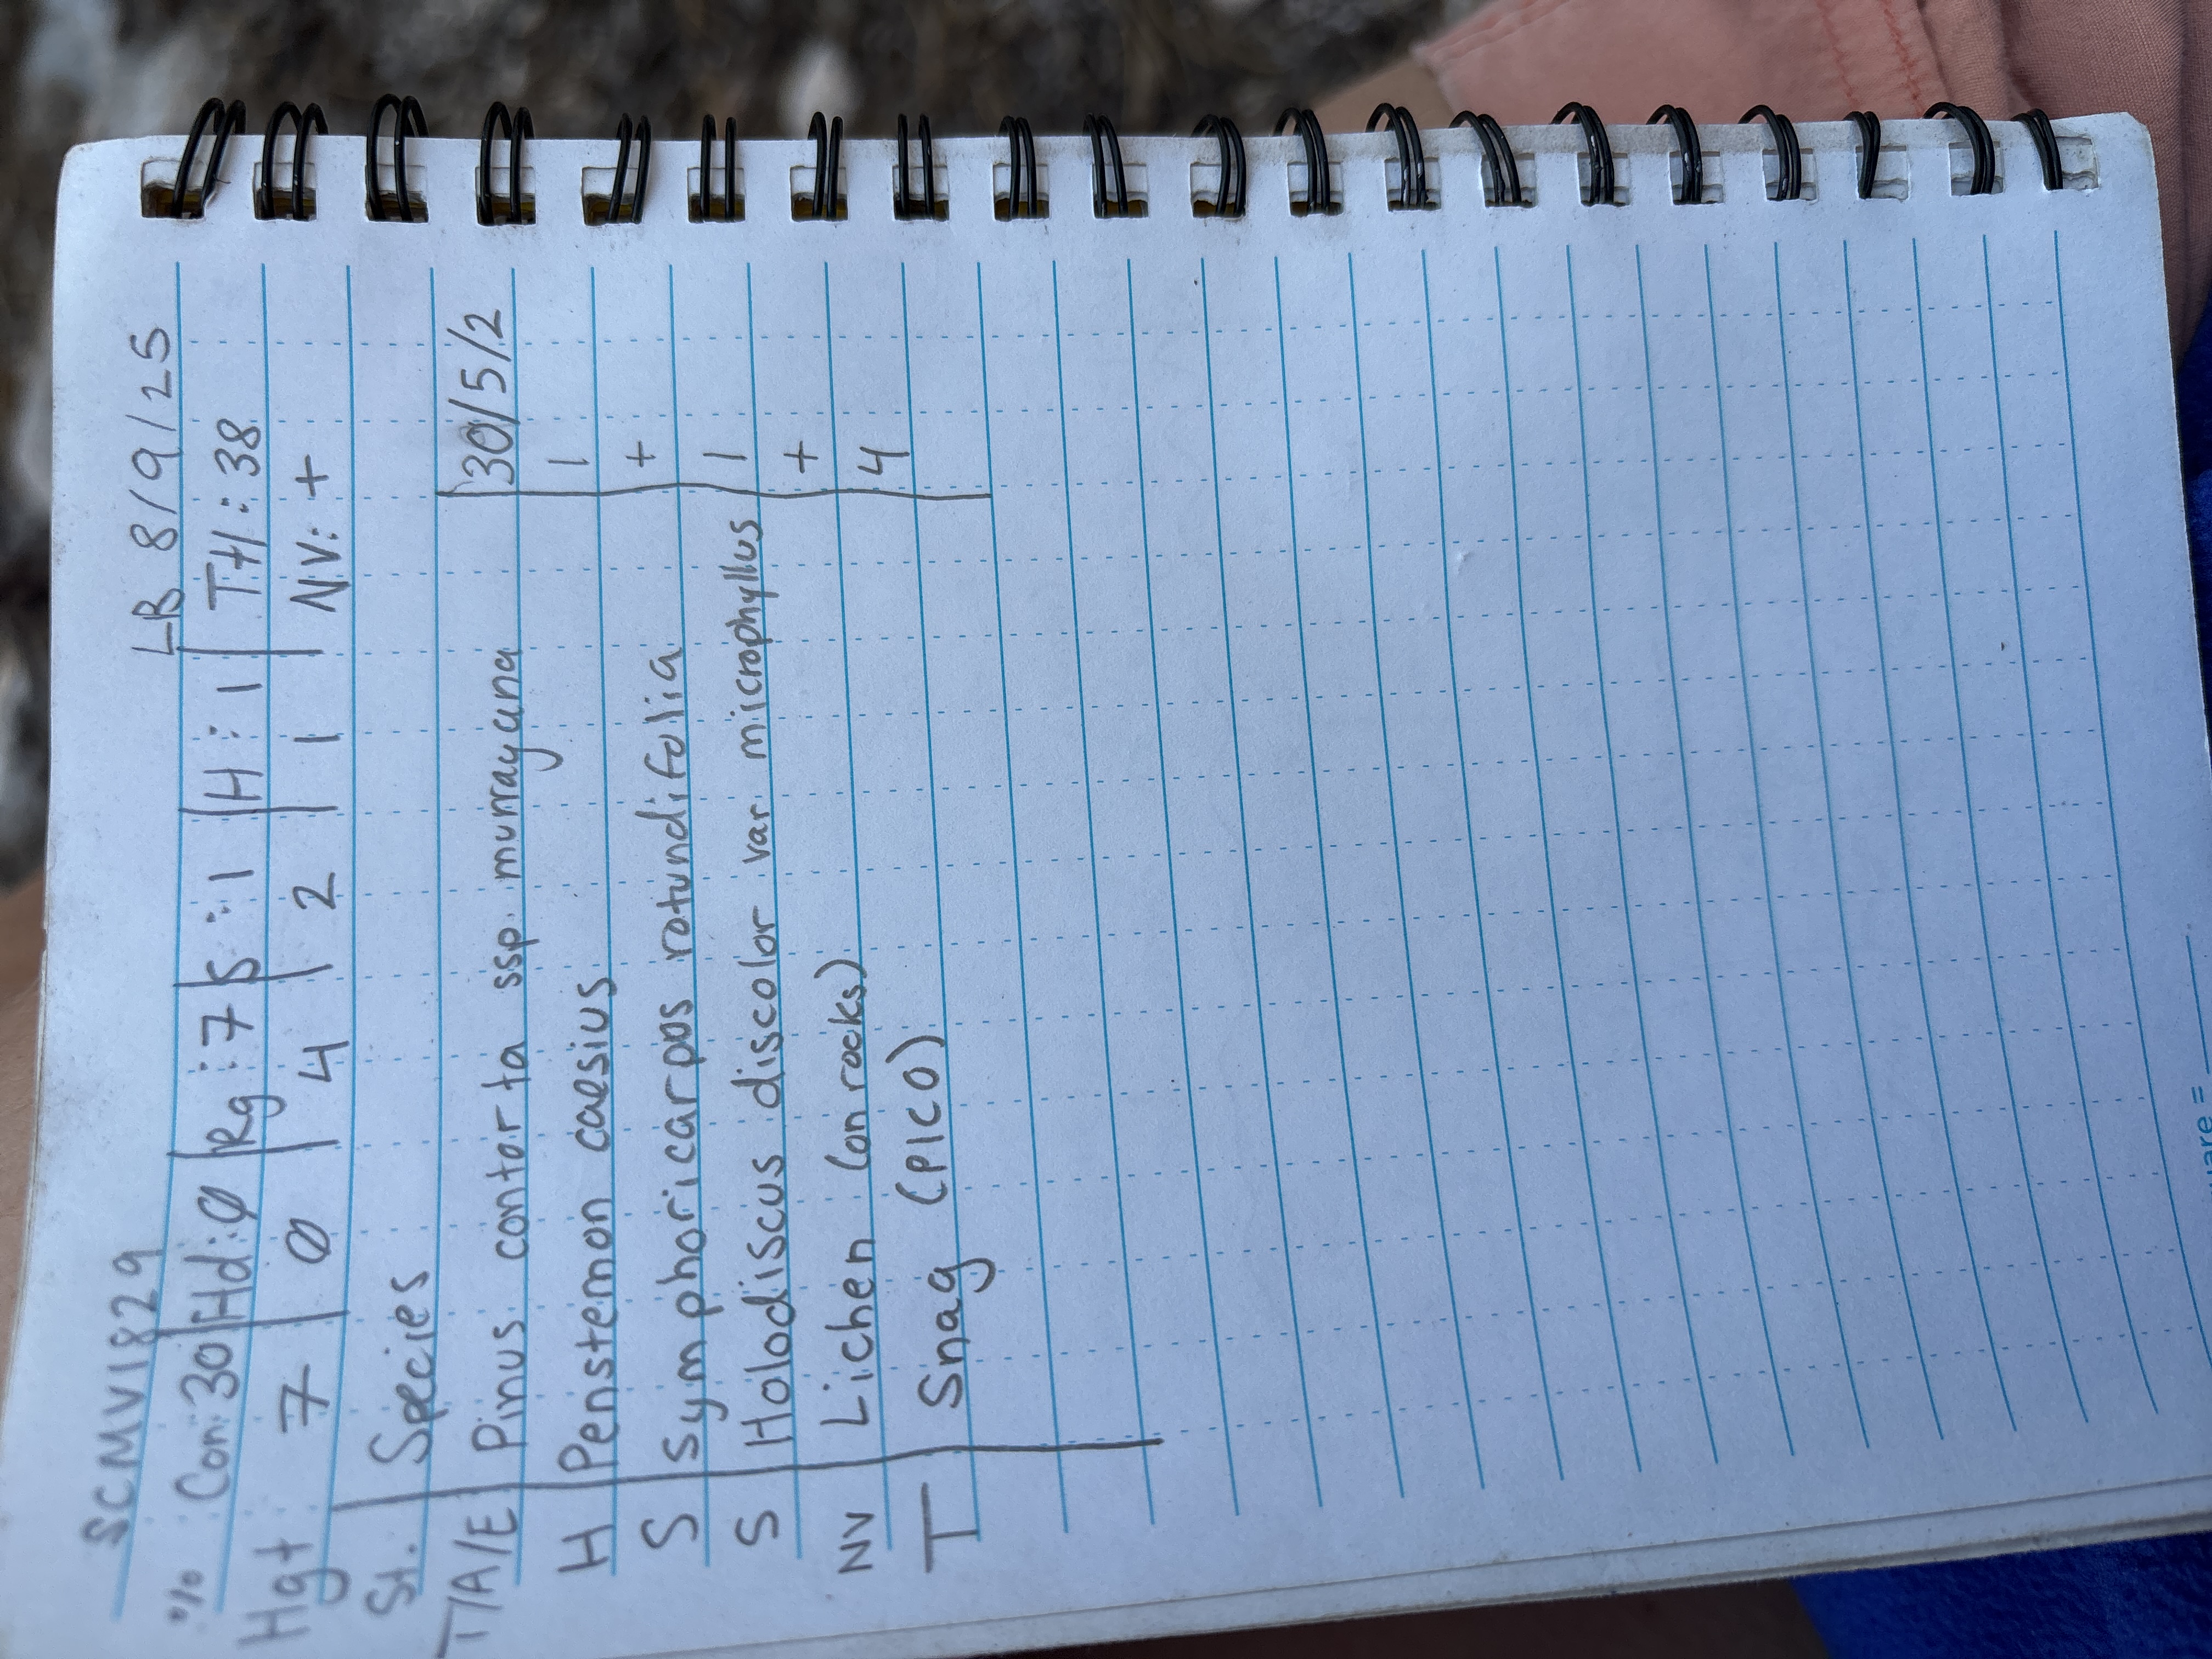 SCMV1829 LB 8/9/25
% Con: 30 | Hd: Ø | Rg: 7 | S: 1 | H: 1 | Ttl: 38
Hgt 7 | Ø | 4 | 2 | 1 | NV: +
St. | Species
T/A/E | Pinus contorta ssp. murrayana | 30/5/2
H | Penstemon caesius | 1
S | Symphoricarpos rotundifolia | +
S | Holodiscus discolor var microphyllus | 1
NV | Lichen (on rocks) | +
T | Snag (PICO) | 4